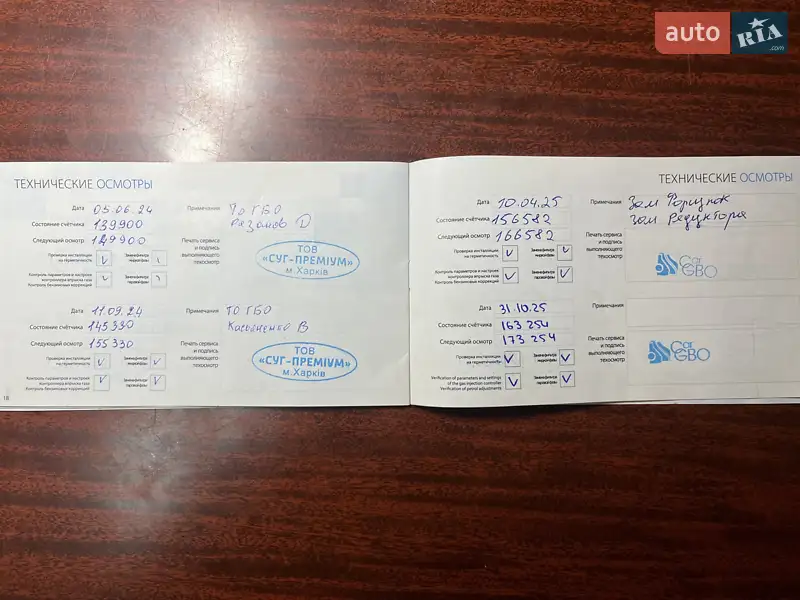 auto RIA .com
ТЕХНИЧЕСКИЕ ОСМОТРЫ
Дата 05.06.24
Примечания ТО ГБО
Состояние счётчика 139900
Следующий осмотр 149900
Печать сервиса
и подпись
выполняющего
техосмотр
ТОВ
«СУГ-ПРЕМІУМ»
м.Харків
Проверка инсталяции
на герметичность
Замена фильтра
паровой фазы
Контроль параметров и настроек
контроллера впрыска газа
Контроль бензиновых коррекций
Замена фильтра
паровой фазы
Дата 11.09.24
Примечания ТО ГБО
Состояние счётчика 145330
Следующий осмотр 155330
Печать сервиса
и подпись
выполняющего
техосмотр
ТОВ
«СУГ-ПРЕМІУМ»
м.Харків
Проверка инсталяции
на герметичность
Замена фильтра
паровой фазы
Контроль параметров и настроек
контроллера впрыска газа
Контроль бензиновых коррекций
Замена фильтра
паровой фазы
18
ТЕХНИЧЕСКИЕ ОСМОТРЫ
Дата 10.04.25
Примечания Зам Форсунок
Зам Редуктора
Состояние счётчика 156582
Следующий осмотр 166582
Печать сервиса
и подпись
выполняющего
техосмотр
Car
GBO
Проверка инсталяции
на герметичность
Замена фильтра
паровой фазы
Контроль параметров и настроек
контроллера впрыска газа
Контроль бензиновых коррекций
Замена фильтра
паровой фазы
Дата 31.10.25
Примечания
Состояние счётчика 163254
Следующий осмотр 173254
Печать сервиса
и подпись
выполняющего
техосмотр
Car
GBO
Проверка инсталяции
на герметичность
Замена фильтра
паровой фазы
Verification of parameters and settings
of the gas injection controller
Verification of petrol adjustments
Замена фильтра
паровой фазы